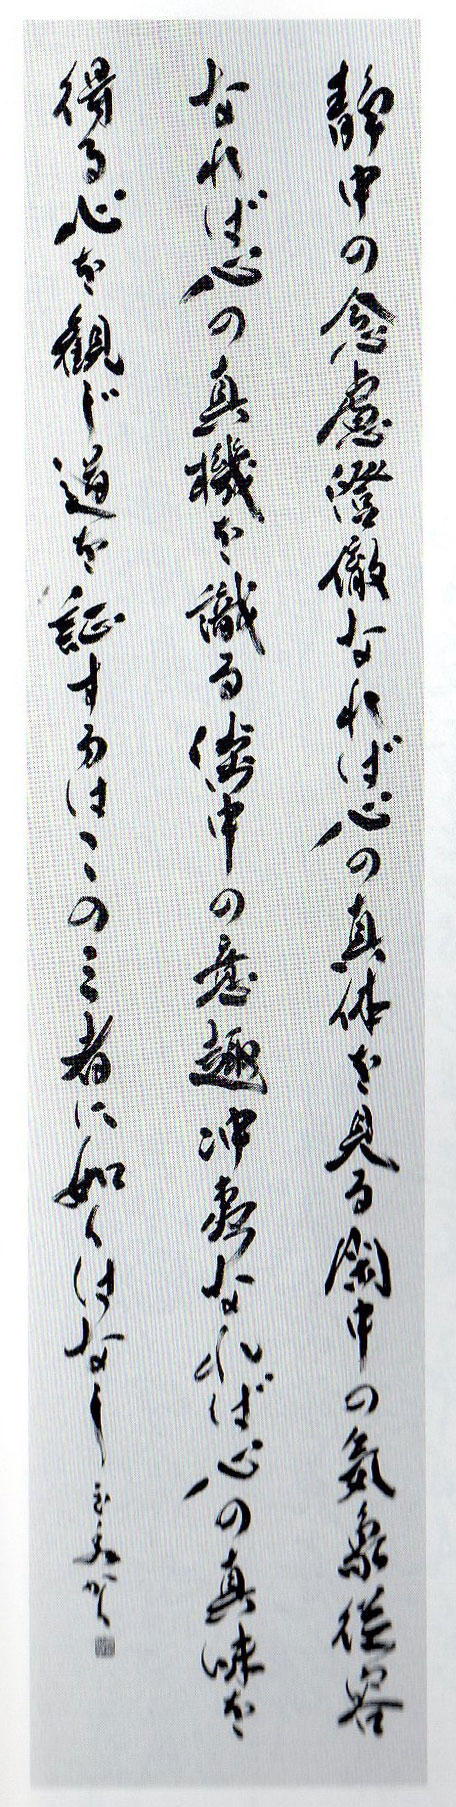 静中の念慮澄徹なれば心の真体を見る閑中の気象従容
なれば心の真機を識る澹中の意趣冲夷なれば心の真味を
得る心を観じ道を証するはこの三者に如くはなし